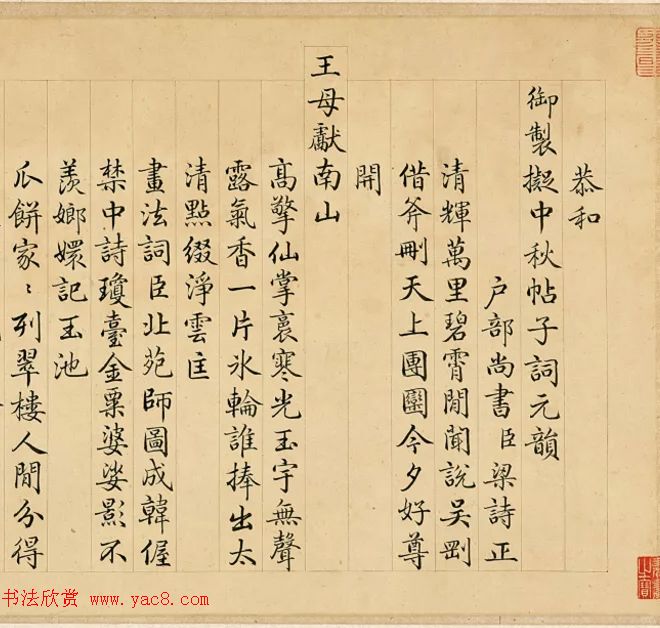 恭和
御製擬中秋帖子詞元韻
户部尚書臣梁詩正
清輝萬里碧霄閒聞說吴剛
借斧刪天上團圞今夕好尊
開
王母獻南山
高擎仙掌裛寒光玉宇無聲
露氣香一片氷輪誰捧出太
清點綴淨雲匡
畫法詞臣北苑師圖成韓偓
禁中詩瓊臺金粟婆娑影不
羨嫏嬛記玉池
瓜餅家〻列翠樓人閒分得
书法欣赏 www.yac8.com